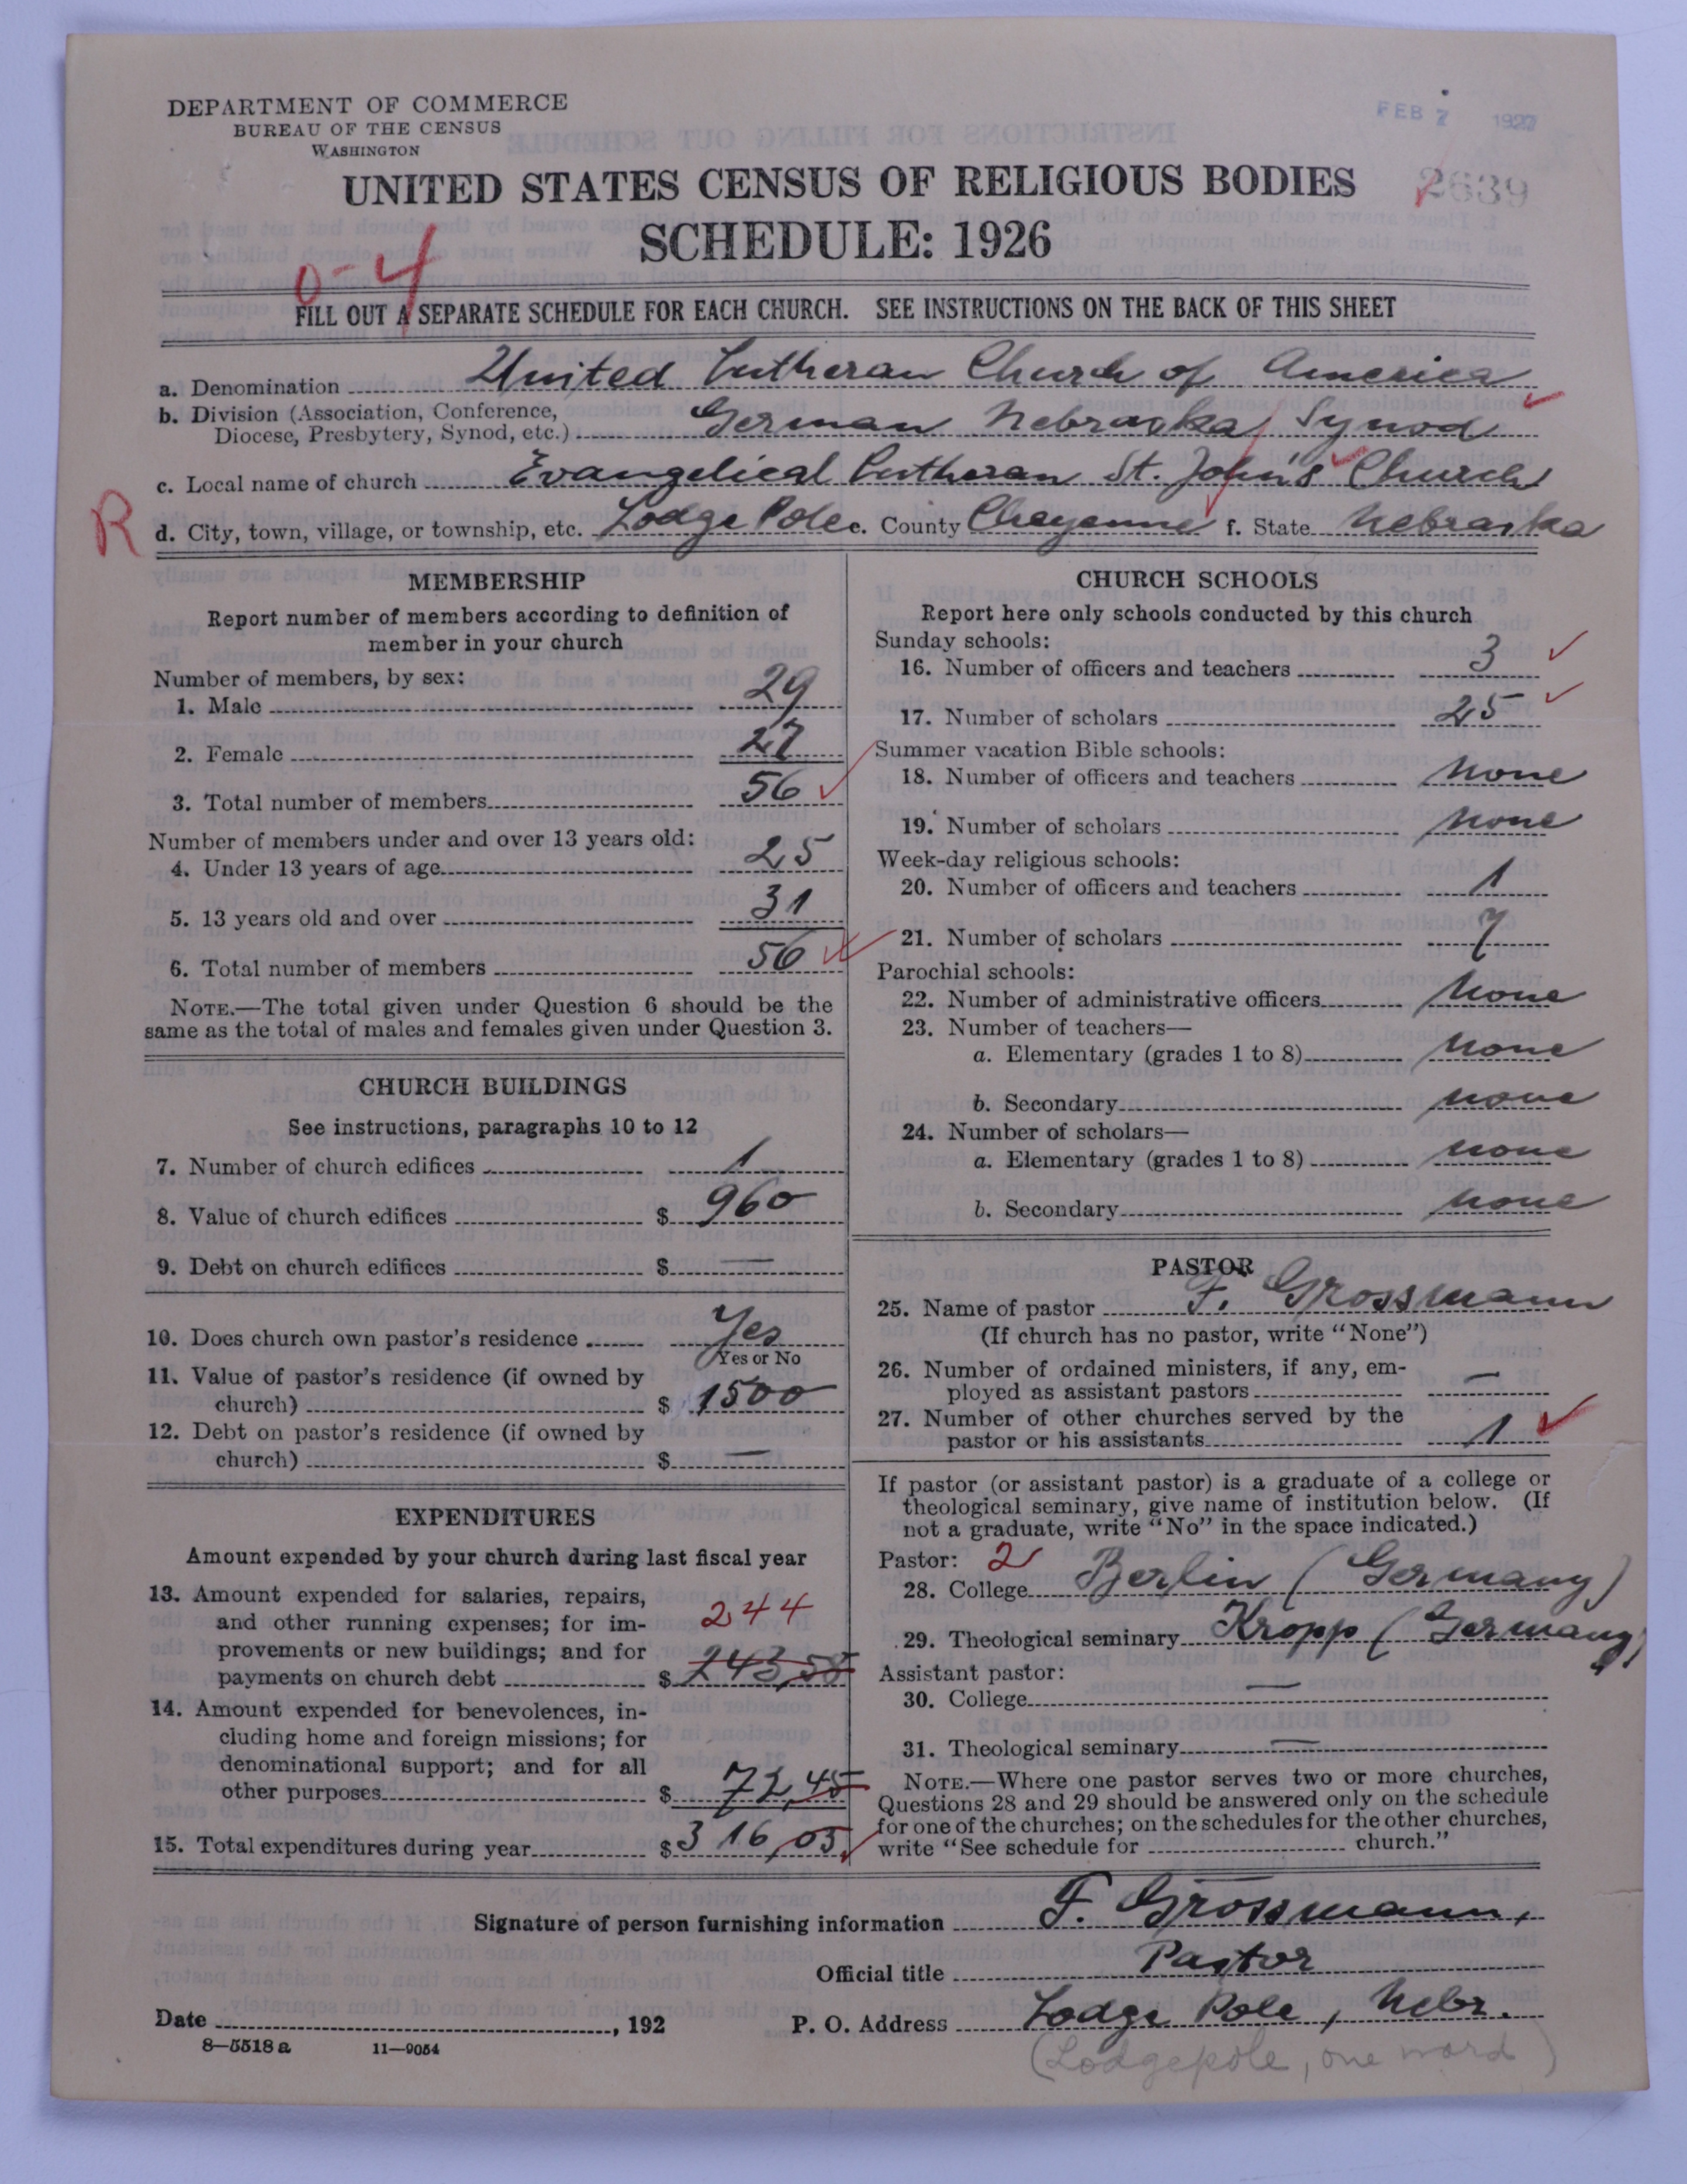 DEPARTMENT OF COMMERCE
BUREAU OF THE CENSUS
WASHINGTON
FEB 7 1927
UNITED STATES CENSUS OF RELIGIOUS BODIES
2639
SCHEDULE: 1926
0-4
FILL OUT A SEPARATE SCHEDULE FOR EACH CHURCH. SEE INSTRUCTIONS ON THE BACK OF THIS SHEET
a. Denomination United Lutheran Church of America
b. Division (Association, Conference,
Diocese, Presbytery, Synod, etc.) German Nebraska Synod
c. Local name of church Evangelical Lutheran St. John's Church
R
d. City, town, village, or township, etc. Lodge Pole e. County Cheyenne f. State Nebraska
MEMBERSHIP
Report number of members according to definition of
member in your church
Number of members, by sex:
1. Male 29
2. Female 27
3. Total number of members 56
Number of members under and over 13 years old:
4. Under 13 years of age 25
5. 13 years old and over 31
6. Total number of members 56
NOTE.—The total given under Question 6 should be the
same as the total of males and females given under Question 3.
CHURCH BUILDINGS
See instructions, paragraphs 10 to 12
7. Number of church edifices 1
8. Value of church edifices $ 960
9. Debt on church edifices $ —
10. Does church own pastor's residence Yes
Yes or No
11. Value of pastor's residence (if owned by
church) $ 1500
12. Debt on pastor's residence (if owned by
church) $ —
EXPENDITURES
Amount expended by your church during last fiscal year
13. Amount expended for salaries, repairs,
and other running expenses; for im- 244
provements or new buildings; and for
payments on church debt $ 243,58
14. Amount expended for benevolences, in-
cluding home and foreign missions; for
denominational support; and for all
other purposes $ 72,45
15. Total expenditures during year $ 316,03
CHURCH SCHOOLS
Report here only schools conducted by this church
Sunday schools:
16. Number of officers and teachers 3
17. Number of scholars 25
Summer vacation Bible schools:
18. Number of officers and teachers None
19. Number of scholars None
Week-day religious schools:
20. Number of officers and teachers 1
21. Number of scholars 7
Parochial schools:
22. Number of administrative officers None
23. Number of teachers—
a. Elementary (grades 1 to 8) None
b. Secondary none
24. Number of scholars—
a. Elementary (grades 1 to 8) none
b. Secondary none
PASTOR
25. Name of pastor F. Grossmann
(If church has no pastor, write "None")
26. Number of ordained ministers, if any, em-
ployed as assistant pastors —
27. Number of other churches served by the
pastor or his assistants 1
If pastor (or assistant pastor) is a graduate of a college or
theological seminary, give name of institution below. (If
not a graduate, write "No" in the space indicated.)
Pastor: 2
28. College Berlin (Germany)
29. Theological seminary Kropp (Germany)
Assistant pastor:
30. College —
31. Theological seminary —
NOTE.—Where one pastor serves two or more churches,
Questions 28 and 29 should be answered only on the schedule
for one of the churches; on the schedules for the other churches,
write "See schedule for church."
Signature of person furnishing information F. Grossmann,
Official title Pastor
Date , 192 P. O. Address Lodge Pole, Nebr.
8—5518 a 11—9054
(Lodgepole, one word)